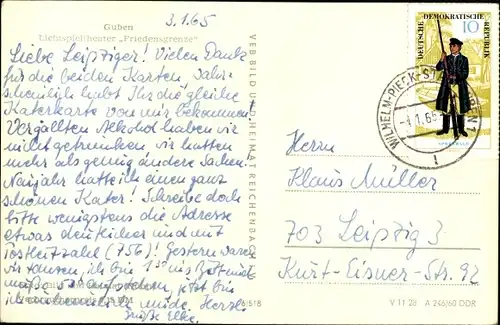 Guben
Lichtspieltheater „Friedensgrenze"
3.1.65
Liebe Leipziger! Vielen Dank
für die beiden Karten. Wahr-
scheinlich habt Ihr die gleiche
Katerkarte von mir bekommen!
Vergällten Alkohol haben wir
nicht getrunken, wir hatten
mehr als genug andere Sachen.
Neujahr hatte ich einen ganz
schönen Kater! Schreibe doch
bitte wenigstens die Adresse
etwas deutlicher und mit
Postleitzahl (756)! Gestern waren
wir tanzen, ich bin
aufgestanden, jetzt bin
ich müde. Herzl.
Grüße Elke.
VEB BILD UND HEIMAT REICHENBACH
DEUTSCHE DEMOKRATISCHE REPUBLIK
10
WILHELM-PIECK-STADT GUBEN 1
1.65
Herrn
Klaus Müller
703 Leipzig 3
Kurt-Eisner-Str. 92
V 11 28 A 246/60 DDR